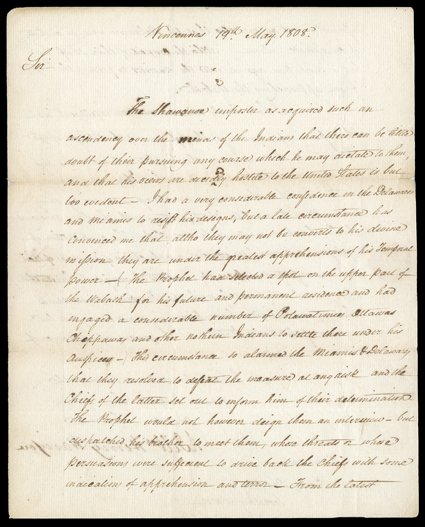 Vincennes 19th May 1808.
Sir
The Shawanoe imposter as acquired such an
ascendency over the minds of the Indians that there can be little
doubt of their pursuing any course which he may dictate to them,
and that his views are decidedly hostile to the United States is but
too evident - I had a very considerable confidence in the Delawares
and Miamis to resist his designs, but a late circumstance has
convinced me that altho they may not be converts to his devine
mission they are under the greatest apprehensions of his Temporal
power - The Prophet had selected a spot on the upper part of
the Wabash for his future and permanent residence and had
engaged a considerable number of Potawatimies Ottawas
Chippaways and other nothern Indians to settle there under his
Auspices - This circumstance so alarmed the Miamis & Delawares
that they resolved to defeat the measure at any risk and the
Chiefs of the latter set out to inform him of their determination
The Prophet would not however deign them an interview - but
dispatched his brother to meet them, whose threats or whose
persuasions were sufficient to drive back the Chiefs with some
indication of apprehension and terror - From the latest